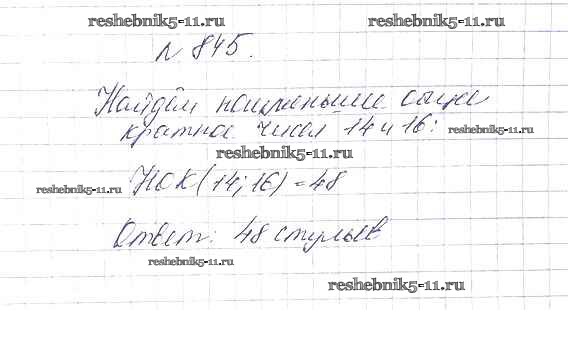 reshebnik5-11.ru reshebnik5-11.ru
№ 845.
Найдём наименьшее общее
кратное чисел 14 и 16: reshebnik5-11.ru
reshebnik5-11.ru
reshebnik5-11.ru НОК(14; 16) = 48
Ответ: 48 стульев
reshebnik5-11.ru
reshebnik5-11.ru